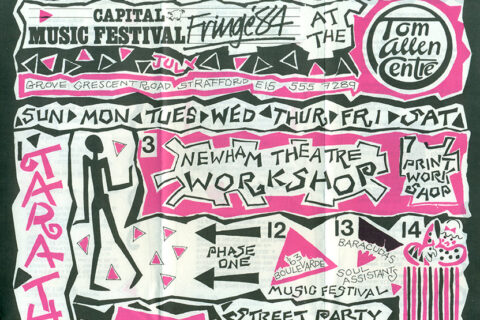 CAPITAL
MUSIC FESTIVAL
Fringe '84
AT
THE
Tom
Allen
Centre
JULY
GROVE CRESCENT ROAD STRATFORD E15 555 7289
SUN MON TUES WED THUR FRI SAT
1
TARATH
3
NEWHAM THEATRE
WORKSHOP
7
PRINT
WORK
SHOP
PHASE
ONE
12
'63
BOULEVARDE
13
BARACUDAS
SOUL
ASSISTANTS
14
MUSIC FESTIVAL
STREET PARTY